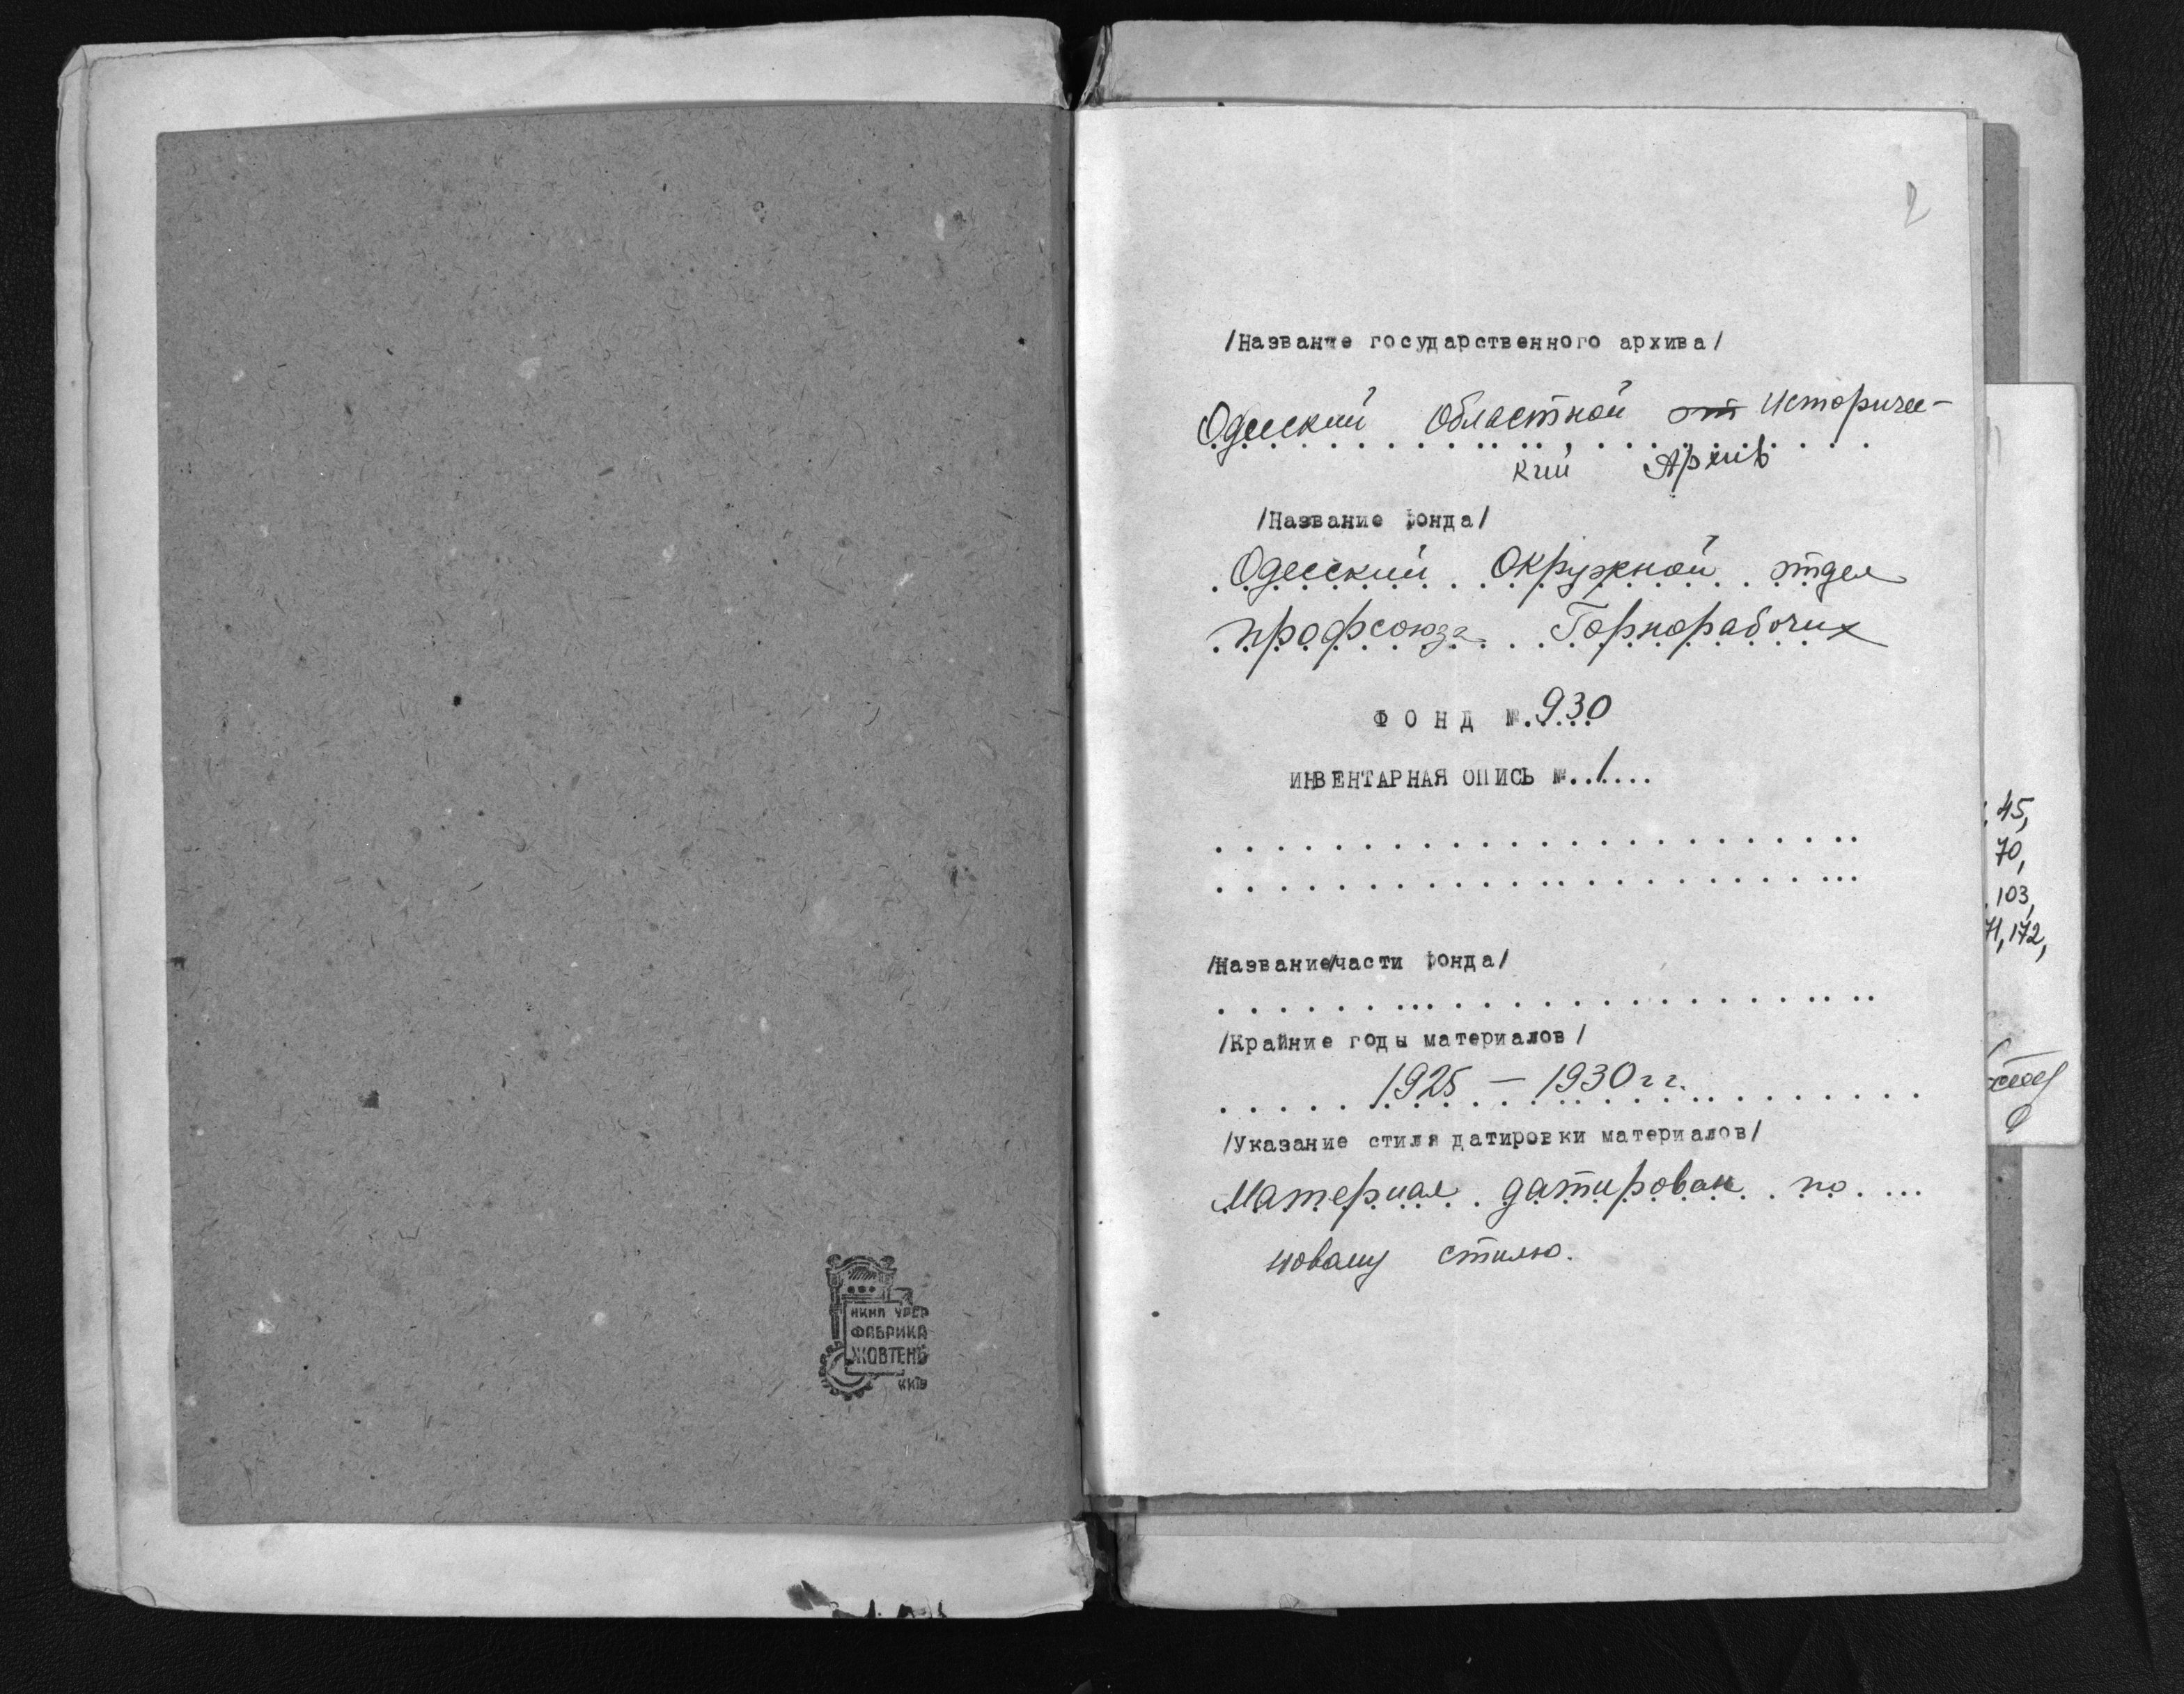 НКМП УРСР
ФАБРИКА
ЖОВТЕНЬ
КИЇВ
2
/Название государственного архива/
Одесский Областной от Историчес-
кий Архив
/Название фонда/
Одесский Окружной отдел
профсоюза Горнорабочих
ФОНД №.930
ИНВЕНТАРНАЯ ОПИСЬ №..1...
/Название/части фонда/
/Крайние годы материалов/
1925 — 1930 гг.
/Указание стиля датировки материалов/
Материал датирован по
новому стилю.
45,
70,
103,
71, 172,